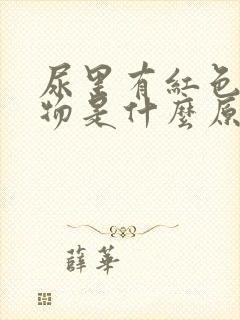 尿里有紅色
物是什麼原
薛華